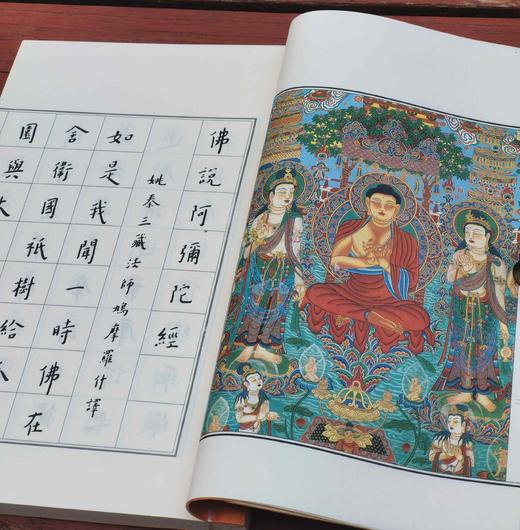 佛說阿彌陀經
姚秦三藏法師鳩摩羅什譯
如是我聞一時佛在
舍衛國祇樹給
園與大